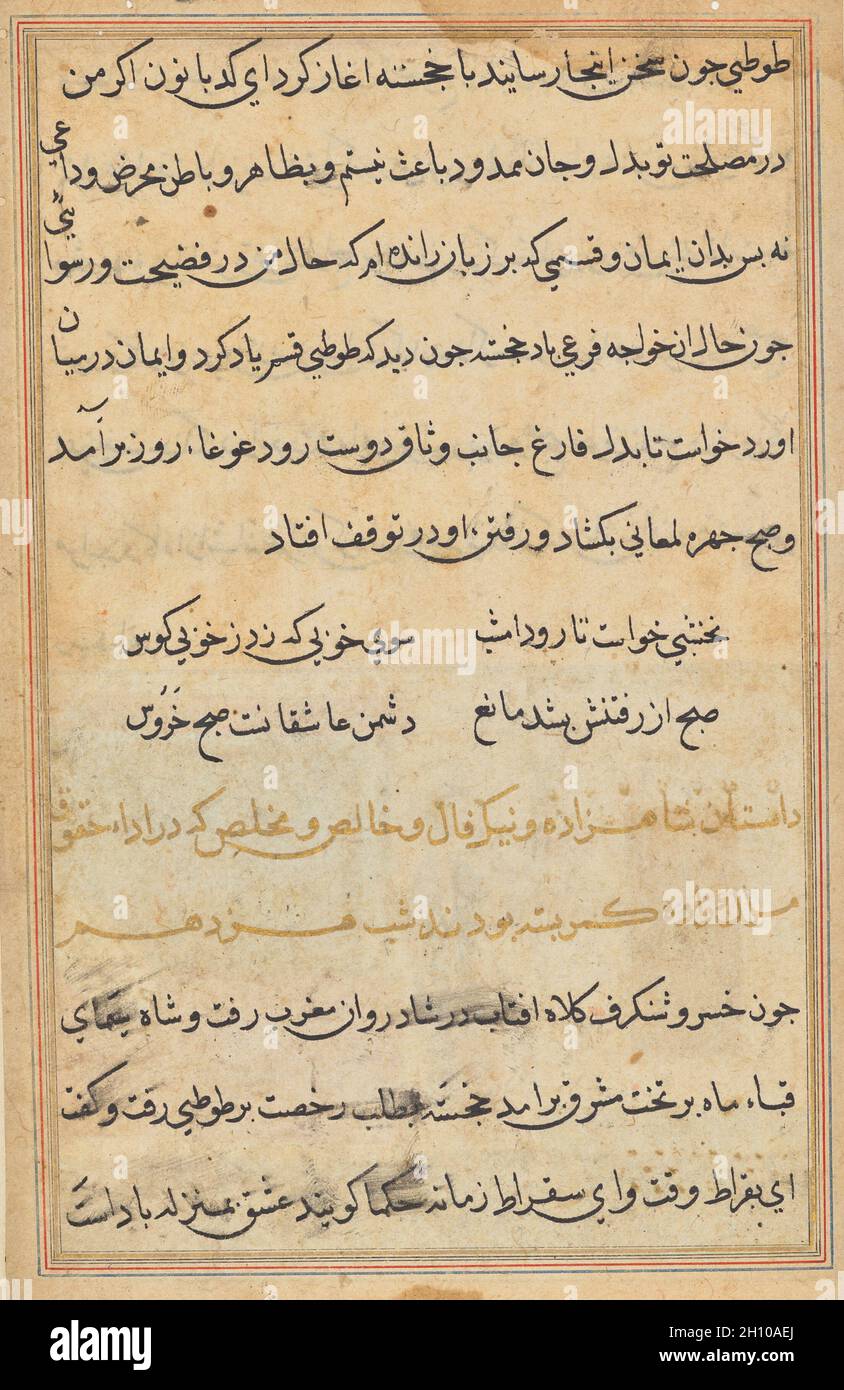 طوطي جون سخن اينجا رسانيد با خجسته اغاز كرد اي كدبانون اكر من
در مصلحت تو بدل و جان ممد و باعث نيستم و بظاهر و باطن محرض و داعي
نه بس بدان ايمان و قسمي كه بر زبان رانده ام كه حال من در فضيحت و رسوائي
جون حال ان خواجه فرعي باد خجسته جون ديد كه طوطي قسم ياد كرد و ايمان در ميان
اورد خواست تا بدل فارغ جانب وثاق دوست رود غوغاء روز برآمد
و صبح جهره لمعاني بكشاد و رفتن او در توقف افتاد
نخشبي خواست تا رود امشب سوي خوبي كه زد ز خوبي كوس
صبح از رفتنش بشد مانع دشمن عاشقانست صبح خروس
داستان شاهزاده و نيك فال و خالص و مخلص كه در اداء حقوق
كمر بسته بودند شب هزدهم
جون خسرو شنكرف كلاه افتاب در شادروان مغرب رفت و شاه يغماي
قباء ماه بر تخت مشرق برامد خجسته بطلب رخصت بر طوطي رفت و كفت
اي بقراط وقت و اي سقراط زمانه حكما كويند عشق بمنزله باداست
alamy
Image ID: 2H10AEJ
www.alamy.com